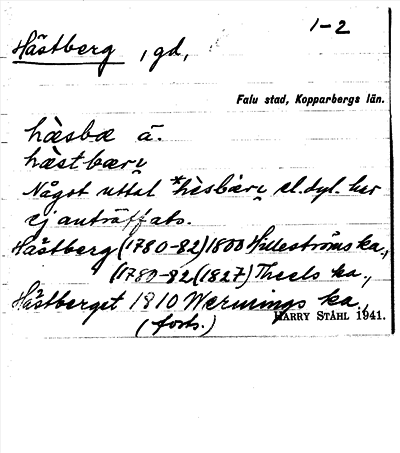 1-2
Hästberg, gd,
Falu stad, Kopparbergs län.
hæ̀sbæ ä.
hæ̀stbærj
Något uttal *hèsbärj el. dyl. har
ej anträffats.
Hästberg (1780-82) 1800 Hilleströms ka.,
(1780-82 (1827) Theels ka.,
Hästberget 1810 Wermings ka.
(forts.)
HARRY STÅHL 1941.